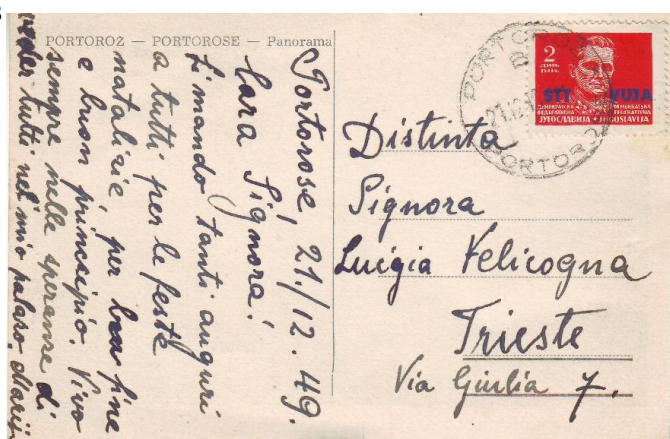 PORTOROZ — PORTOROSE — Panorama
Portorose, 21./12.49.
Cara Signora!
Ti mando tanti auguri
a tutti per le feste
natalizie, per buon fine
e buon principio. Vivo
sempre nelle speranse di
veder tutti nel mio palazo. Marij
PORTOROŽ
21.12.
PORTOROSE
2
STT VUJA
ЈУГОСЛАВИЈА JUGOSLAVIJA
Distinta
Signora
Luigia Velicogna
Trieste
Via Giulia 7.